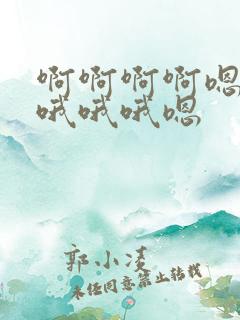 啊啊啊啊嗯
哦哦哦嗯
郭小凌
未经同意禁止转载